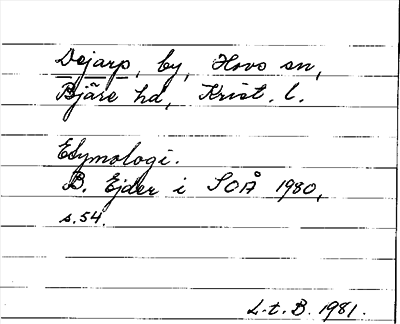 Dejarp, by, Hovs sn,
Bjäre hd, Krist. l.
Etymologi.
B. Ejder i SOÅ 1980,
s.54.
L.t.B. 1981.